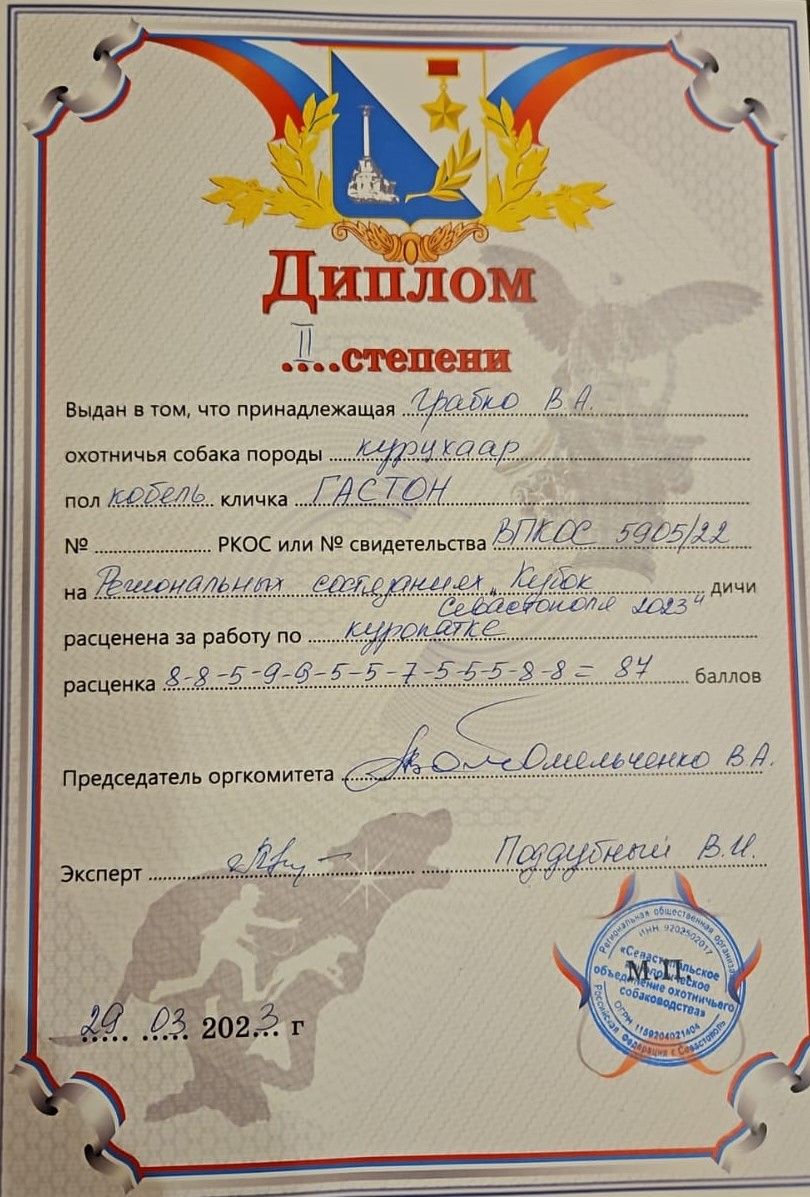 Диплом
II степени
Выдан в том, что принадлежащая Грабко В.А.
охотничья собака породы курцхаар
пол кобель кличка ГАСТОН
№ РКОС или № свидетельства ВПКОС 5905/22
на Региональных состязаниях „Кубок дичи
Севастополя 2023"
расценена за работу по куропатке
расценка 8-8-5-9-9-5-5-7-5-5-5-8-8 = 87 баллов
Председатель оргкомитета Омельченко В.А.
Эксперт Поддубный В.И.
Региональная общественная организация
ИНН 9202502017
«Севастопольское
объединение охотничьего
собаководства»
М.П.
ОГРН 1159204021404
Российская Федерация г. Севастополь
29 03 2023 г